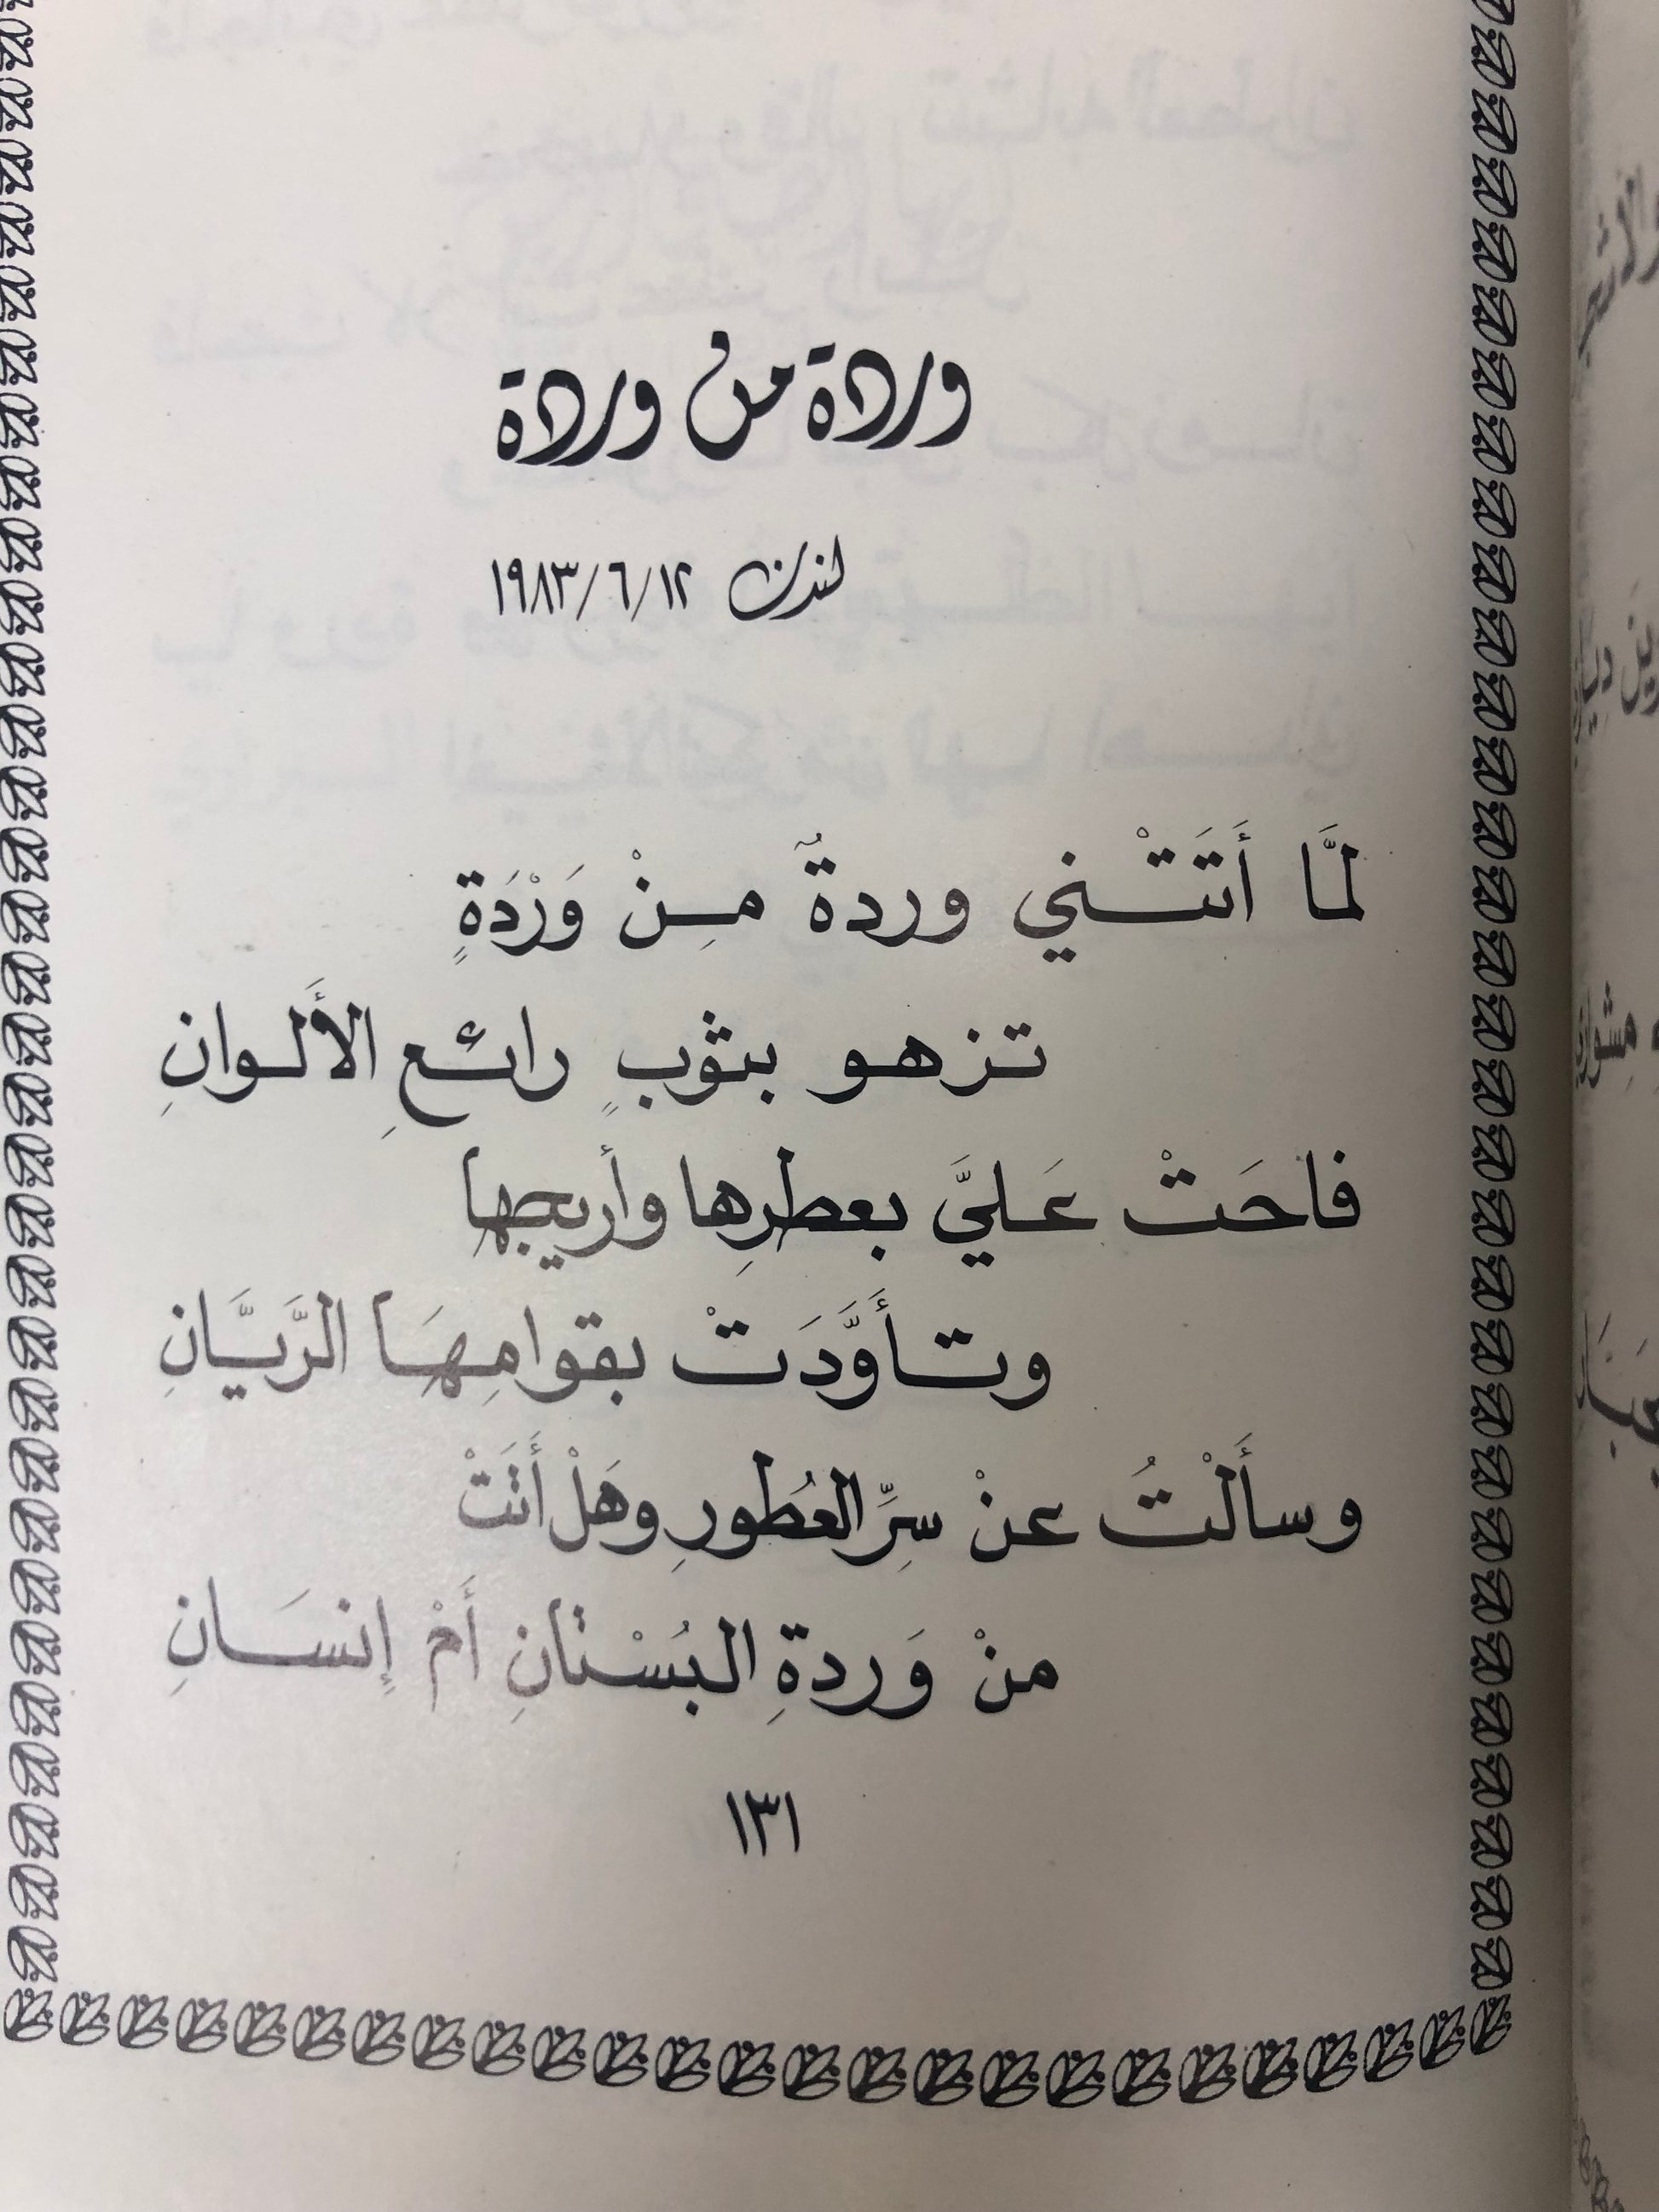 وردة من وردة
لندن ١٩٨٣/٦/١٢
لمَّا أَتَتْني وردةٌ مِنْ وَرْدَةٍ
تزهو بثوبٍ رائعِ الأَلوانِ
فاحَتْ عَليَّ بعطرِها وأريجها
وتأَوَّدَتْ بقوامِهَا الرَّيَّانِ
وسأَلْتُ عنْ سِرِّ العُطورِ وهَلْ أَتَتْ
منْ وَردةِ البُسْتانِ أَمْ إِنسَانِ
١٣١